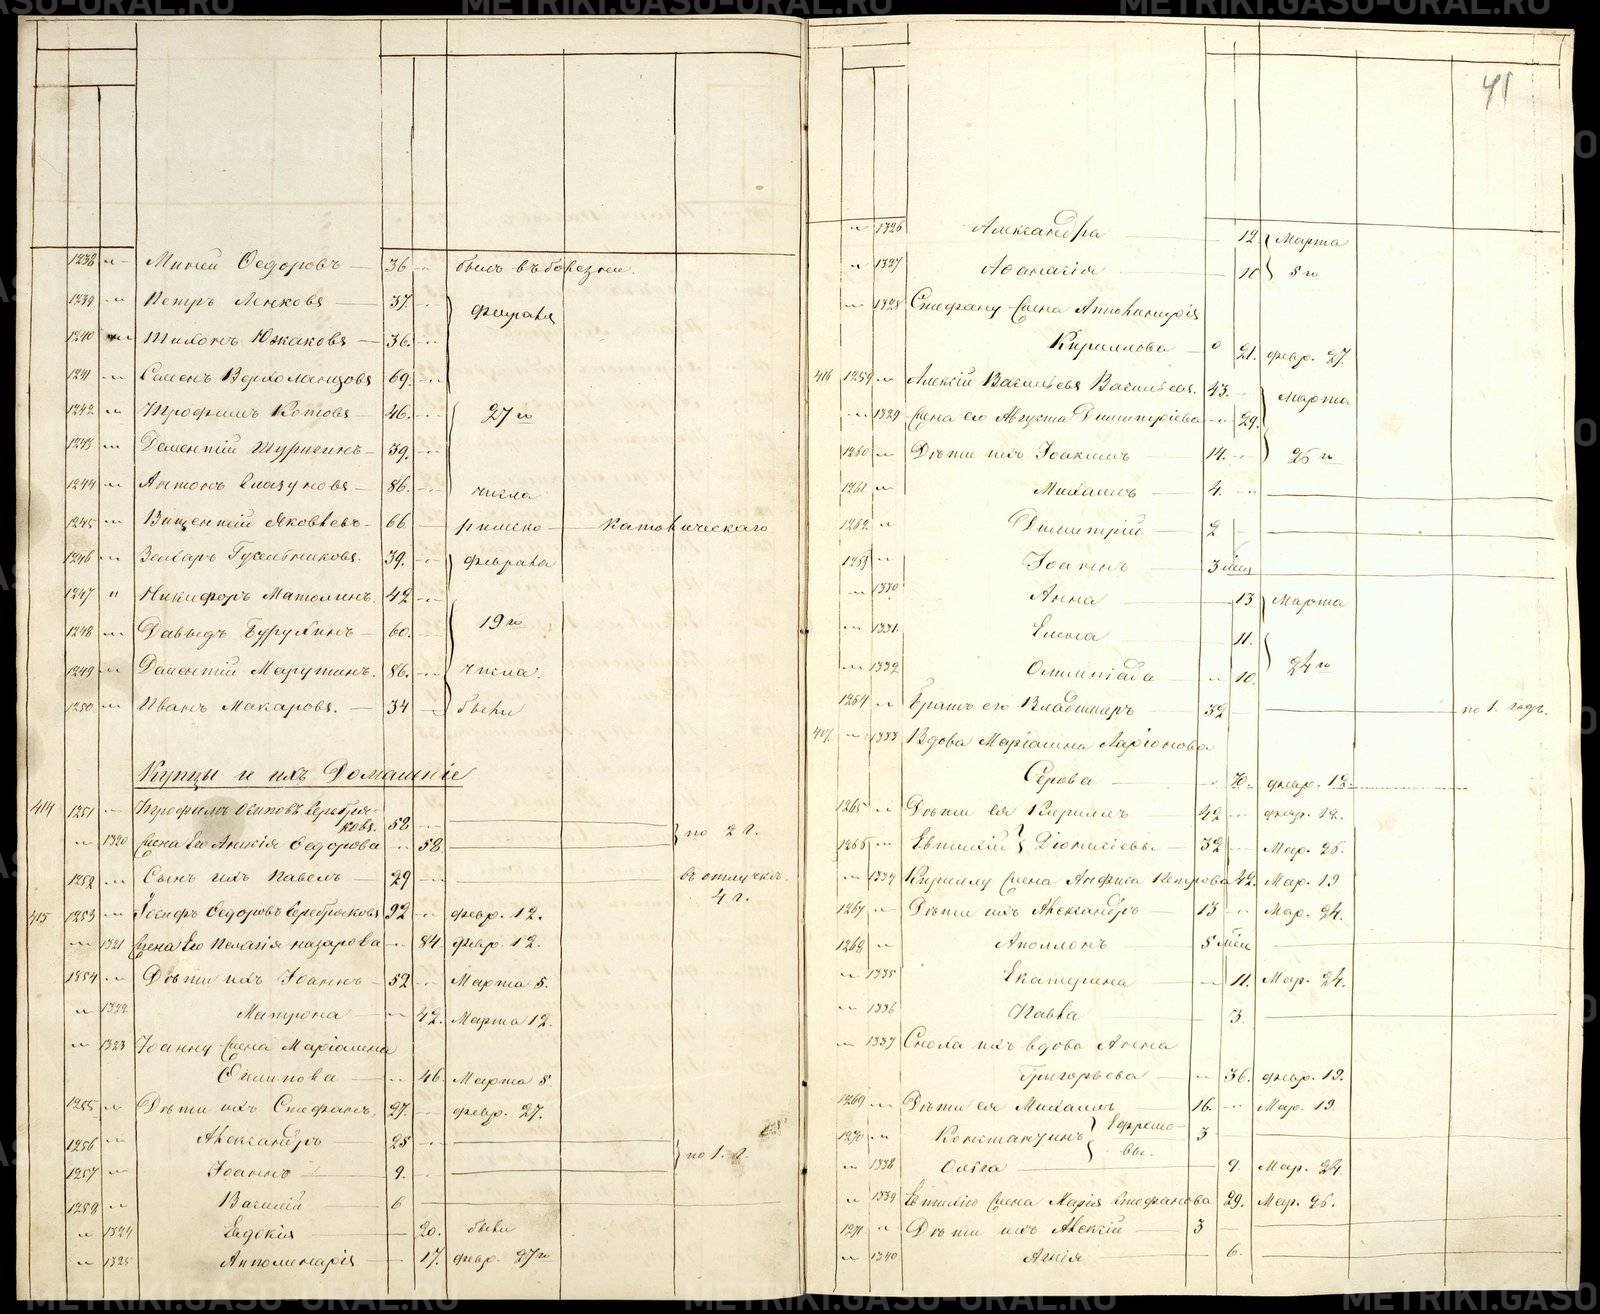 METRIKI.GASO-URAL.RU
41
1238 Миней Федоровъ 36 былъ въ болезни.
1239 Петръ Ленковъ 37. Февраля
1240 Тихонъ Южаковъ 36.
1241 Семенъ Верхоланцовъ 69.
1242 Трофимъ Котовъ 46. 27го
1243 Дементий 39.
1244 Антонъ Глазуновъ 86. числа
1245 Викентий Яковлевъ 66 римско-католическаго
1246 Захаръ 39. февраля
1247 Никифоръ 42
1248 Давыдъ 60. 19го
1249 Дементий 86. числа.
1250 Иванъ Макаровъ. 34 были
Купцы и ихъ Домашніе
414 1251 Трофимъ Осиповъ Серебря-
ковъ. 58
1320 Жена Его Анисія Федорова 58. по 2 г.
1252 Сынъ ихъ Павелъ 29 въ отлучке.
4 г.
415 1253 Іосифъ Федоровъ Серебряковъ 92 февр. 12.
1321 Жена Его Пелагія Назарова 84. февр. 12.
1254 Дѣти ихъ Іоаннъ 52 Марта 5.
1322 Матрона 42. Марта 12.
1323 Іоанну Жена Маріамна
Филипова 46. Марта 5
1255 Дѣти ихъ Стефанъ. 27. февр. 27.
1256 Александръ 25
1257 Іоаннъ 9. по 1. г.
1258 Василій 6
1324 Евдокія 20. были
1325 Апполинарія 17. февр. 27го
1326 Александра 12. Марта
1327 Афанасія 10 5го
1328 Стефану Жена
Кириллова 21. февр. 27.
416 1259 Алексій Васильевъ 43. Марта
1329 Жена его Августа Димитріева 29.
1260 Дѣти ихъ Іоакимъ 14. 25го
1261 Михаилъ 4.
1262 Димитрій 2
1263 Іоаннъ 3 мѣс
1330 Анна 13. Марта
1331. Елена 11.
1332 Олимпіада 10. 24го
1264 Братъ его Владимиръ 32 по 1. годъ.
417. 1333 Вдова Маріамна Ларіонова
Серова 70. февр. 12.
1265 Дѣти ея Кириллъ 42 февр. 12.
1266 Евтихій Діонисіевы. 32 Мар. 26.
1334 Кириллу Жена Анфиса Петрова 42. Мар. 19
1267 Дѣти ихъ Александръ 13 Мар. 24.
1268 Аполлонъ 5 мѣс
1335 Екатерина 11. Мар. 24.
1336 Павла 3.
1337 Сноха ихъ вдова Анна
Григорьева 36. февр. 19.
1269 Дѣти ея Михаилъ 16. Мар. 19.
1270 Константинъ Ефремо-
вы. 3
1338 Ольга 9. Мар. 24
1339 Евтихію Жена Марія Стефанова 29. Мар. 26.
1271 Дѣти ихъ Алексій 3
1340 Агнія 6.